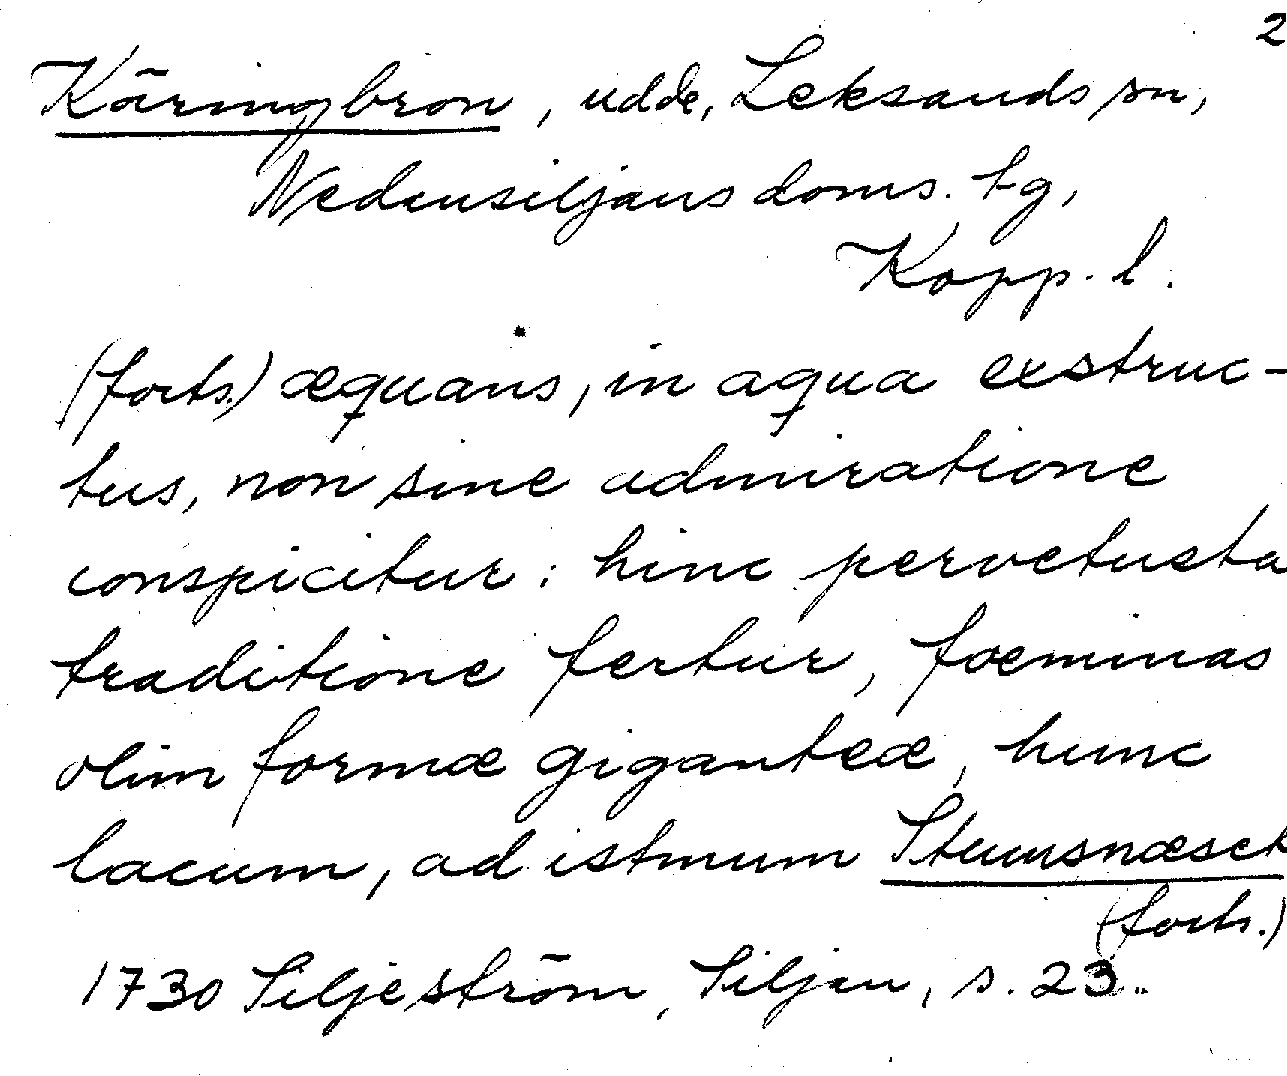 2
Käringbron, udde, Leksands sn,
Nedansiljans doms. tg,
Kopp. l.
(forts.) æquans, in aqua exstruc-
tus, non sine admiratione
conspicitur: hinc pervetusta
traditione fertur, foeminas
olim formæ giganteæ, hunc
lacum, ad istmum Stumsnæset
(forts.)
1730 Siljeström, Siljan, s. 23.